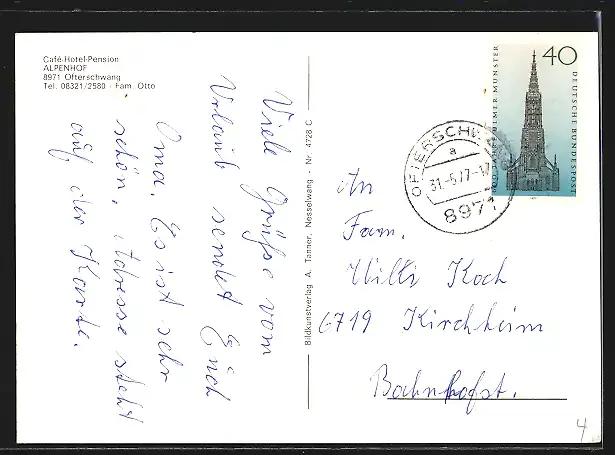 Café-Hotel-Pension
ALPENHOF
8971 Ofterschwang
Tel. 08321/2580 - Fam. Otto
Viele Grüße vom
Urlaub sendet Euch
Oma. Es ist sehr
schön. Adresse steht
auf der Karte.
Bildkunstverlag A. Tanner, Nesselwang - Nr. 4728 C
40
600 JAHRE ULMER MÜNSTER
DEUTSCHE BUNDESPOST
OFTERSCHWANG
a
31.-5.77-17
8971
An
Fam.
Willi Koch
6719 Kirchheim
Bahnhofst.
4